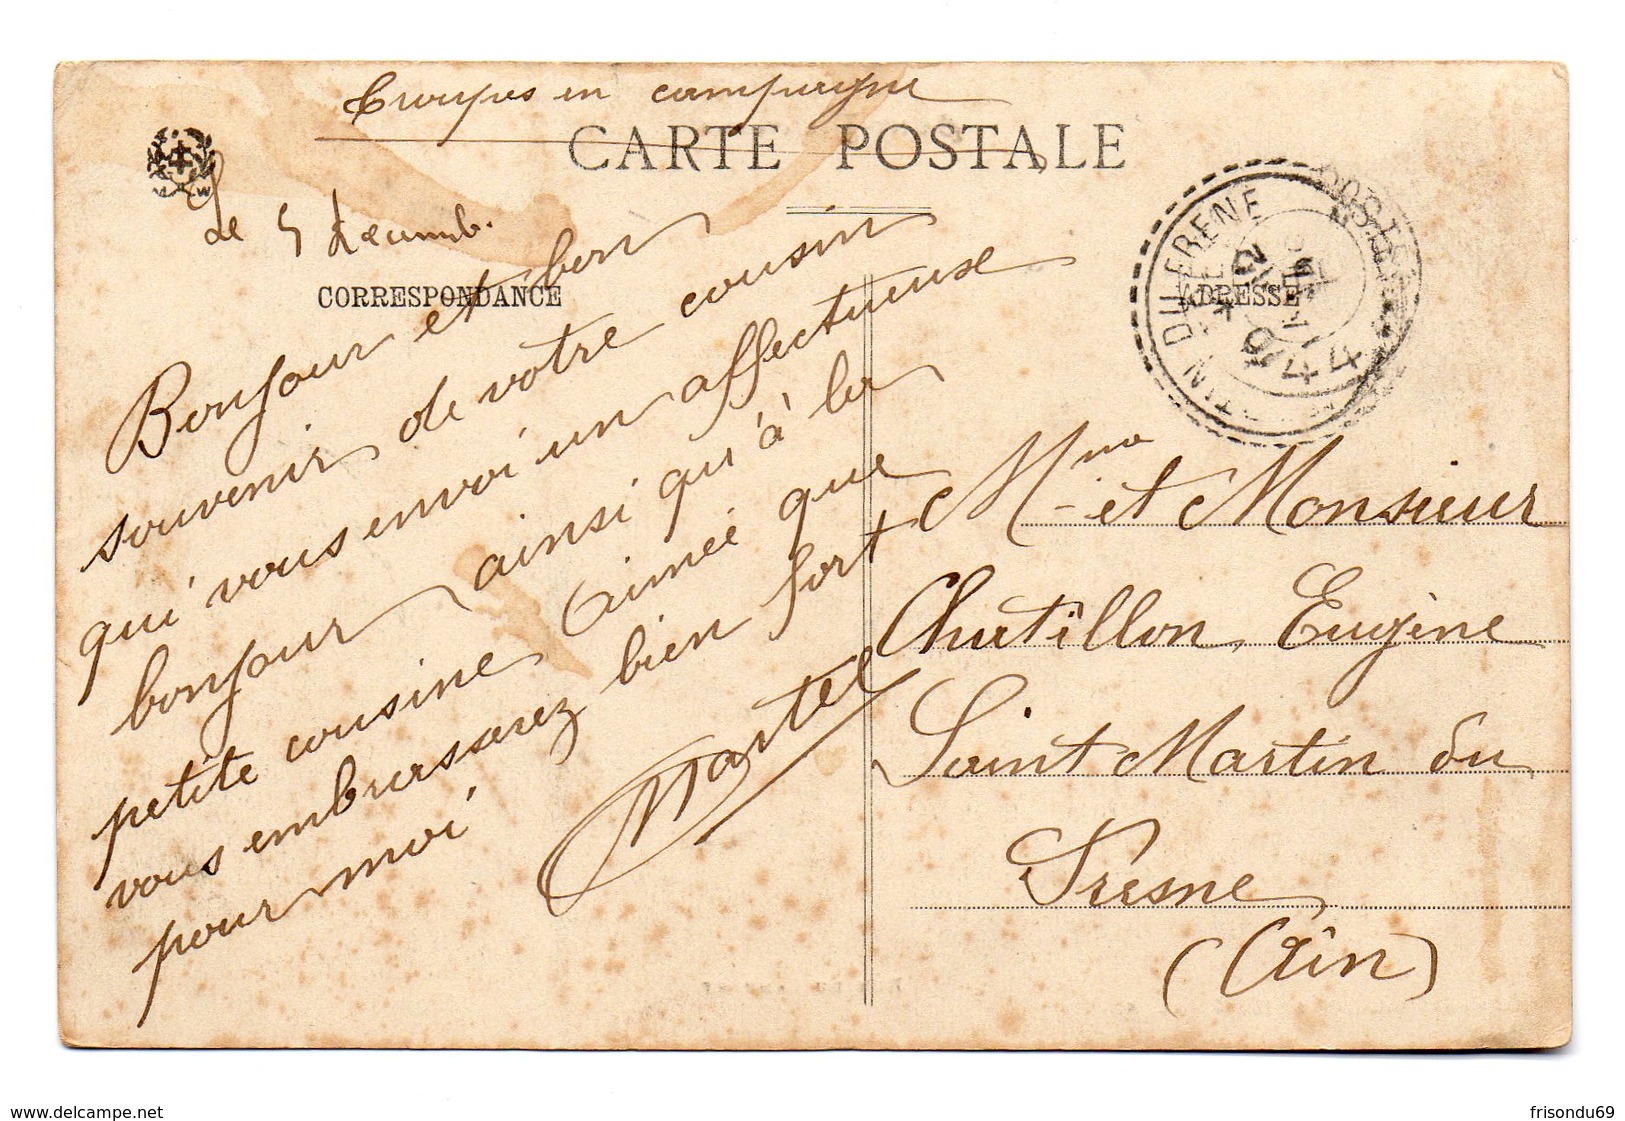 Troupes en campagne
CARTE POSTALE
Le 5 Décemb.
CORRESPONDANCE
Bonjour et bon
souvenir de votre cousin
qui vous envoi un affectueuse
bonjour ainsi qu'à la
petite cousine Aimée que
vous embrasserez bien fort
pour moi
Martel
ADRESSE
TIN DU FRENE
Mme et Monsieur
Chatillon Eugène
Saint Martin du
Fresne
(Ain)
www.delcampe.net
frisondu69